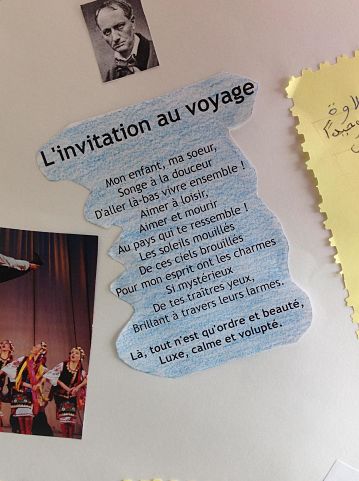 L'invitation au voyage
Mon enfant, ma soeur,
Songe à la douceur
D'aller là-bas vivre ensemble !
Aimer à loisir,
Aimer et mourir
Au pays qui te ressemble !
Les soleils mouillés
De ces ciels brouillés
Pour mon esprit ont les charmes
Si mystérieux
De tes traîtres yeux,
Brillant à travers leurs larmes.
Là, tout n'est qu'ordre et beauté,
Luxe, calme et volupté.